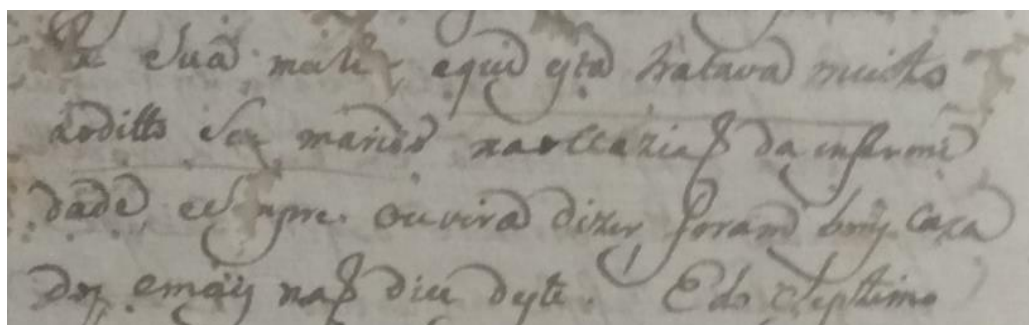 e Sua mulher equi esta tratava muito
ao ditto Seu marido na occaziaõ da infermi
dade, e Sempre ouvira dizer foram bem caza
dos e mais naõ disse deste. E do Septimo